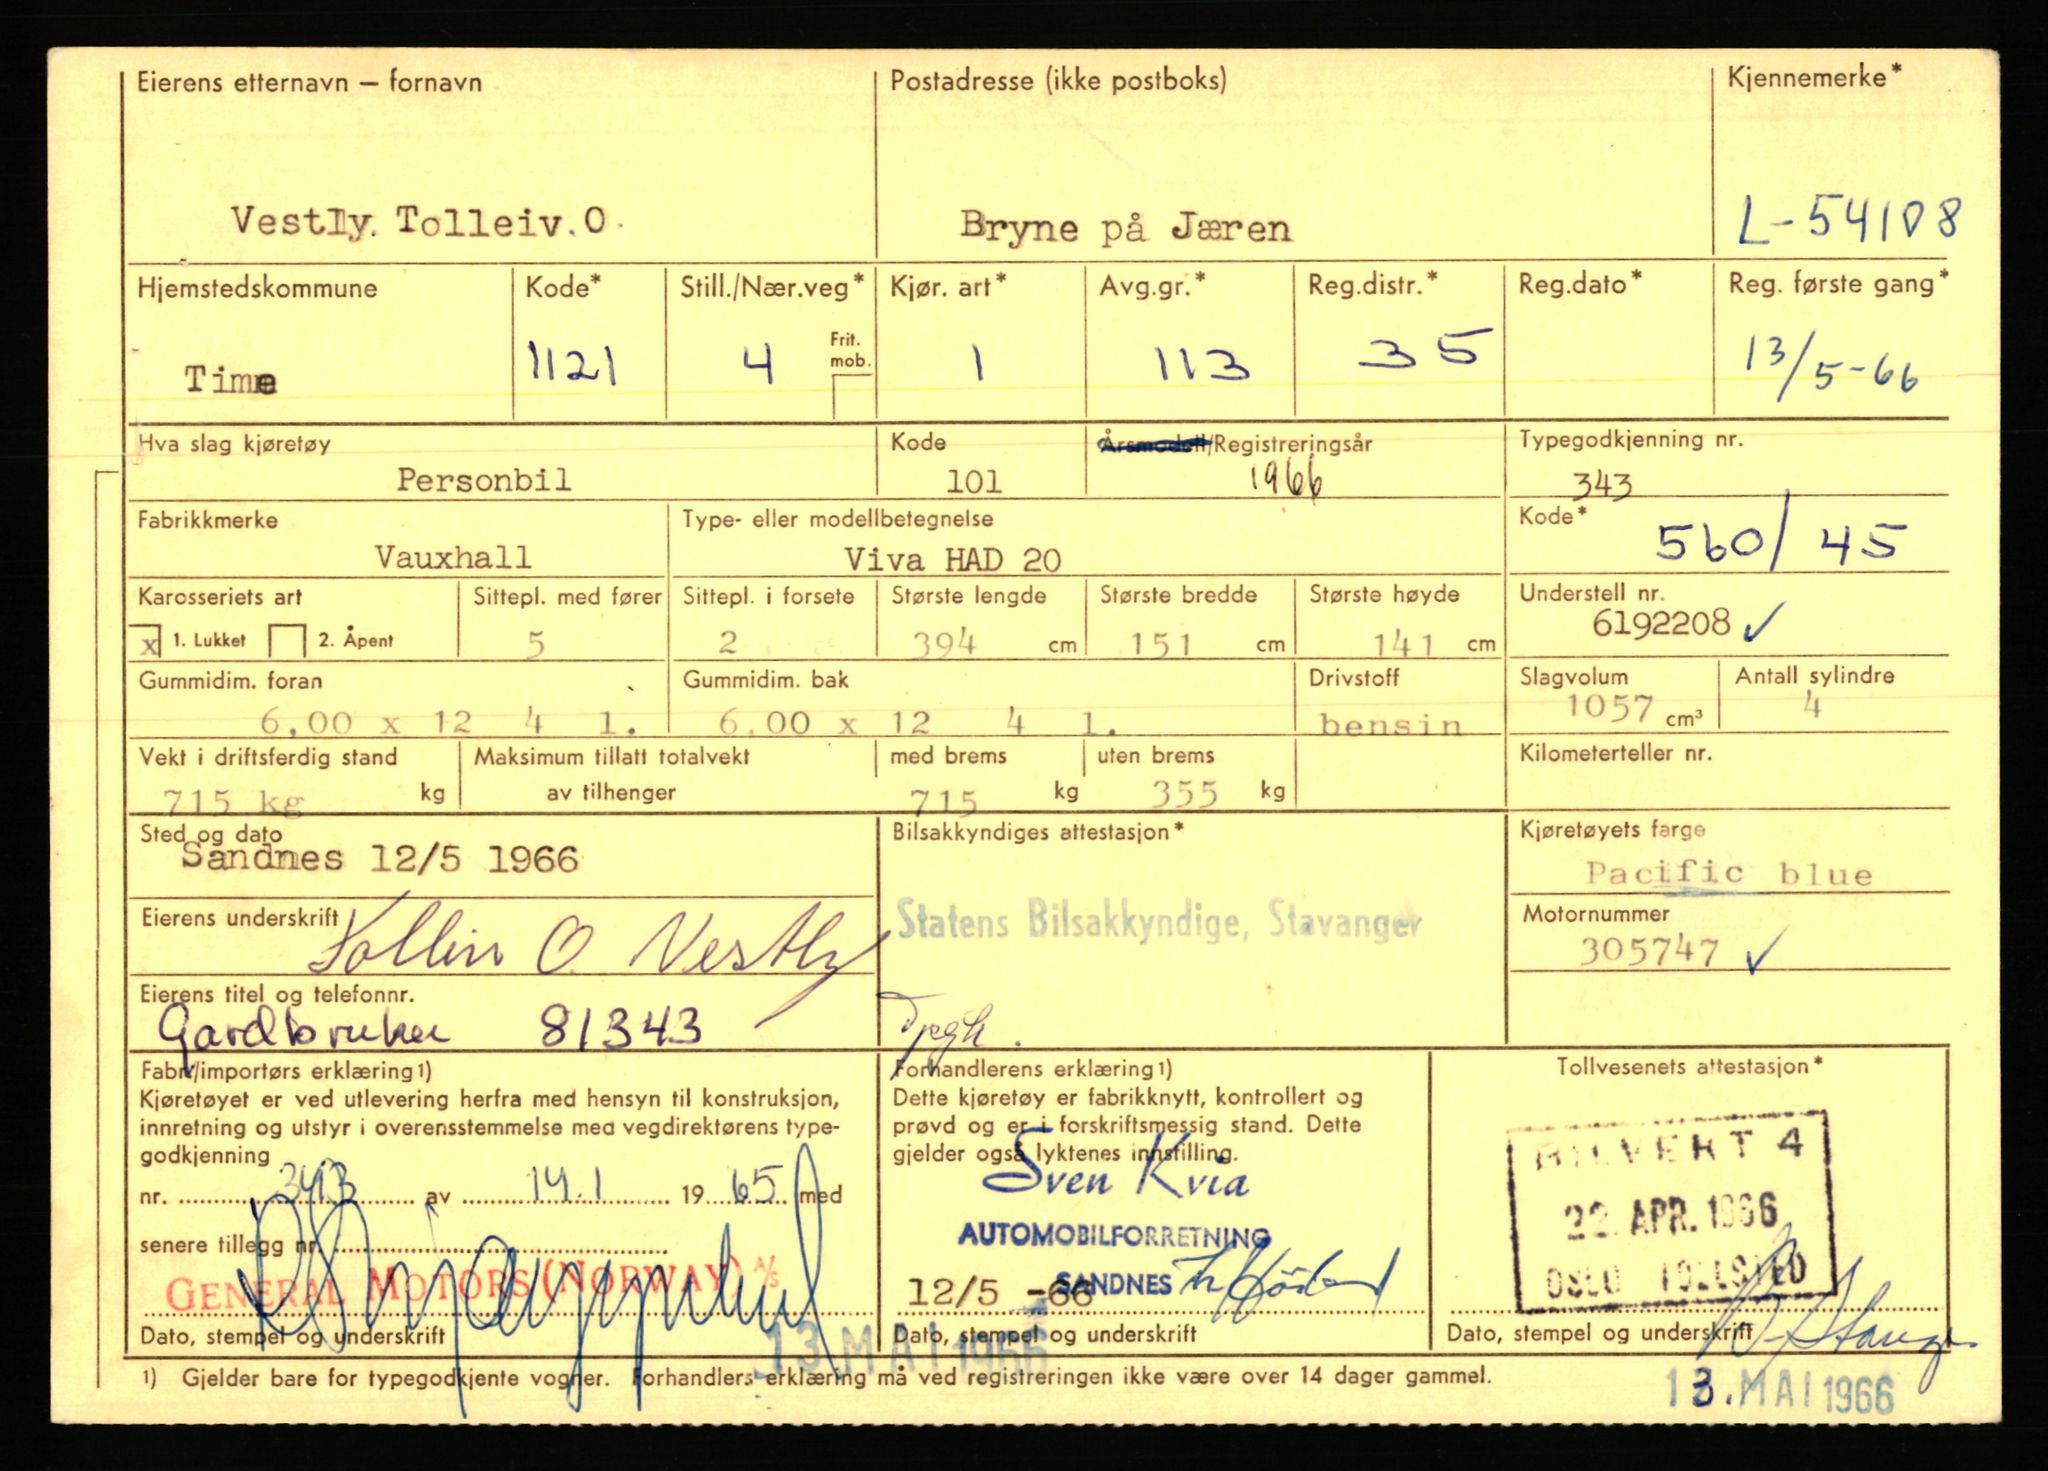 Eierens etternavn – fornavn Postadresse (ikke postboks) Kjennemerke*
Vestly. Tolleiv. O. Bryne på Jæren L-54108
Hjemstedskommune Kode* Still./Nær.veg* Kjør. art* Avg.gr.* Reg.distr.* Reg.dato* Reg. første gang*
Frit. mob.
Time 1121 4 1 113 35 13/5-66
Hva slag kjøretøy Kode Årsmodell/Registreringsår Typegodkjenning nr.
Personbil 101 1966 343
Fabrikkmerke Type- eller modellbetegnelse Kode*
Vauxhall Viva HAD 20 560/45
Karosseriets art Sittepl. med fører Sittepl. i forsete Største lengde Største bredde Største høyde Understell nr.
x 1. Lukket 2. Åpent 5 2 394 cm 151 cm 141 cm 6192208 ✓
Gummidim. foran Gummidim. bak Drivstoff Slagvolum Antall sylindre
6,00 x 12 4 l. 6,00 x 12 4 l. bensin 1057 cm³ 4
Vekt i driftsferdig stand Maksimum tillatt totalvekt med brems uten brems Kilometerteller nr.
715 kg kg av tilhenger 715 kg 355 kg
Sted og dato Bilsakkyndiges attestasjon* Kjøretøyets farge
Sandnes 12/5 1966 Pacific blue
Eierens underskrift Statens Bilsakkyndige, Stavanger Motornummer
O Vestly 305747 ✓
Eierens titel og telefonnr.
Gardbruker 81343
Fabr./importørs erklæring1) Forhandlerens erklæring1) Tollvesenets attestasjon*
Kjøretøyet er ved utlevering herfra med hensyn til konstruksjon, Dette kjøretøy er fabrikknytt, kontrollert og
innretning og utstyr i overensstemmelse med vegdirektørens type- prøvd og er i forskriftsmessig stand. Dette
godkjenning gjelder også lyktenes innstilling. BILVERT 4
nr. 343 av 14.1 1965 med Sven Kvia 22. APR. 1966
senere tillegg nr. AUTOMOBILFORRETNING
GENERAL MOTORS (NORWAY) A/S 12/5 -66 SANDNES OSLO TOLLSTED
Dato, stempel og underskrift Dato, stempel og underskrift Dato, stempel og underskrift
13 MAI 1966
1) Gjelder bare for typegodkjente vogner. Forhandlers erklæring må ved registreringen ikke være over 14 dager gammel.
13. MAI 1966